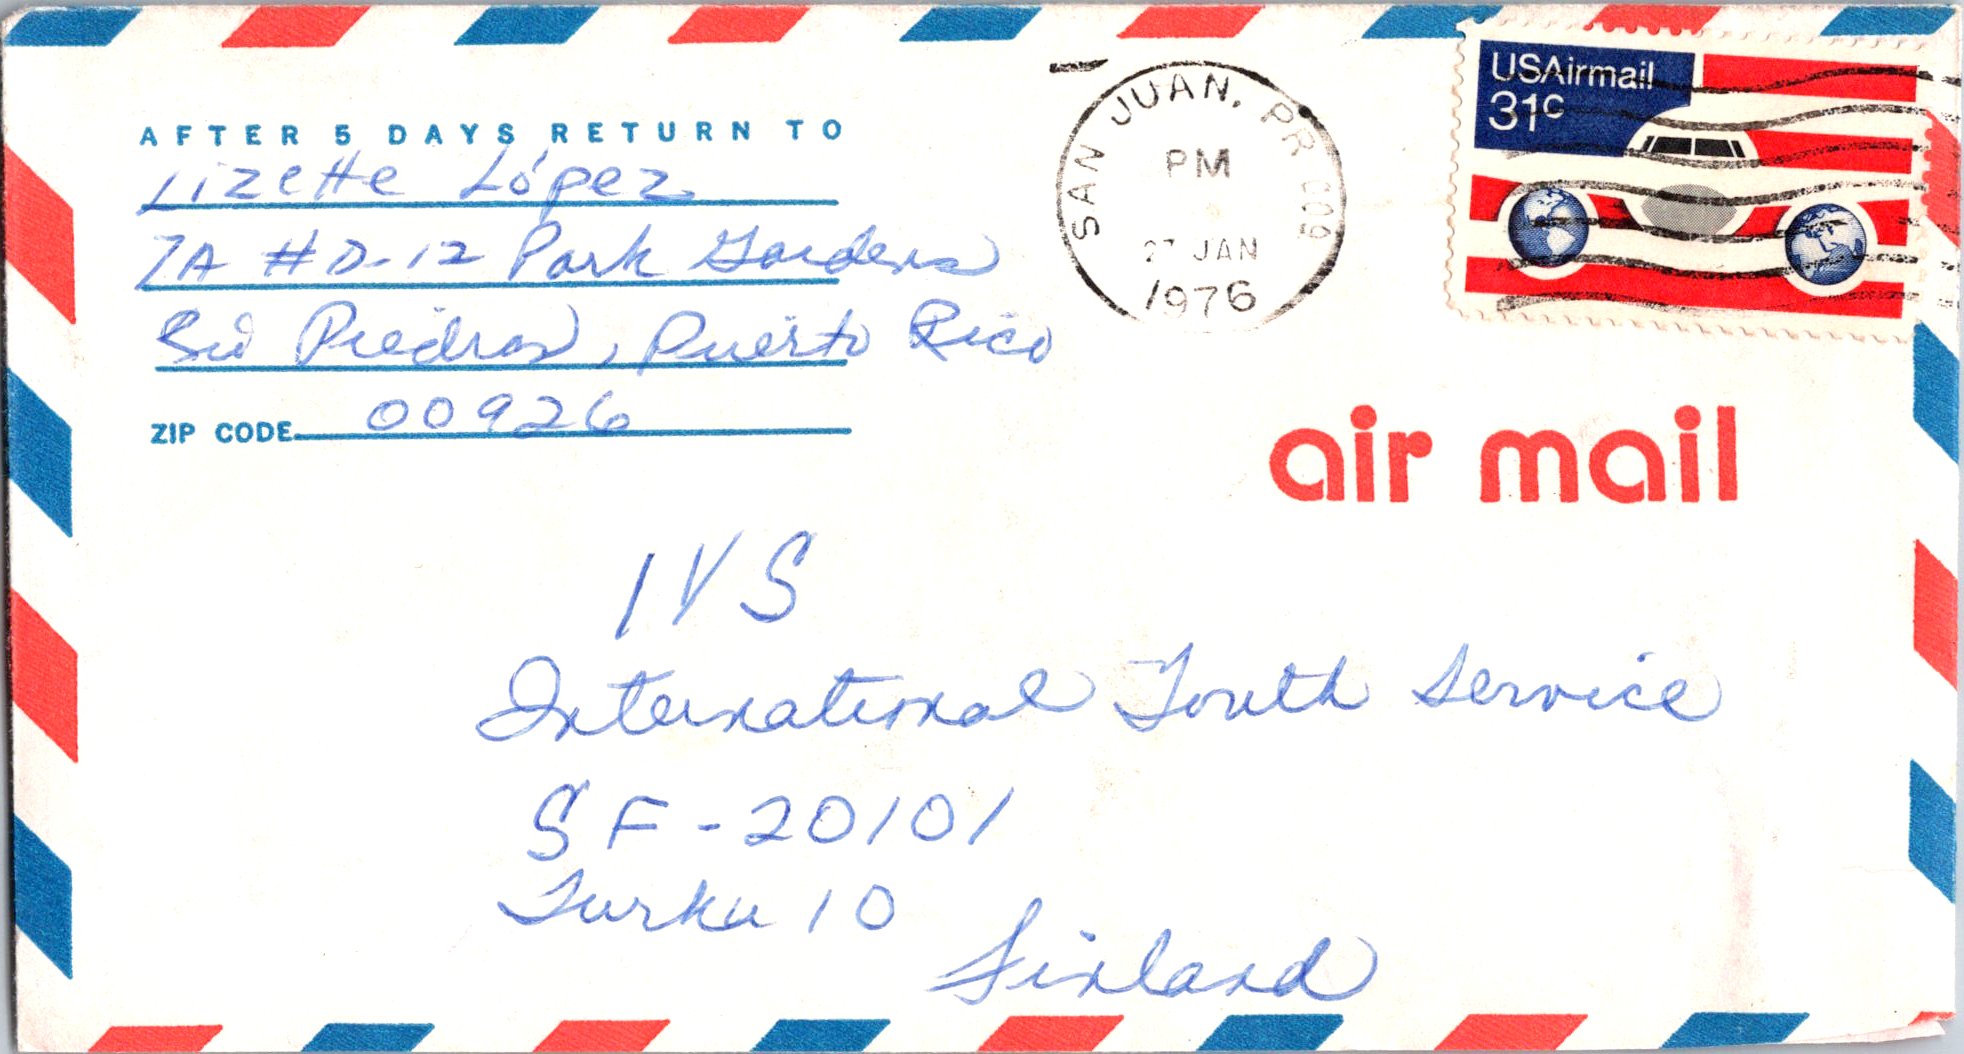 AFTER 5 DAYS RETURN TO
Lizette López
7A #D-12 Park Gardens
Río Piedras, Puerto Rico
ZIP CODE 00926
SAN JUAN, PR 009
PM
27 JAN
1976
USAirmail
31c
air mail
IYS
International Youth Service
SF-20101
Turku 10
Finland